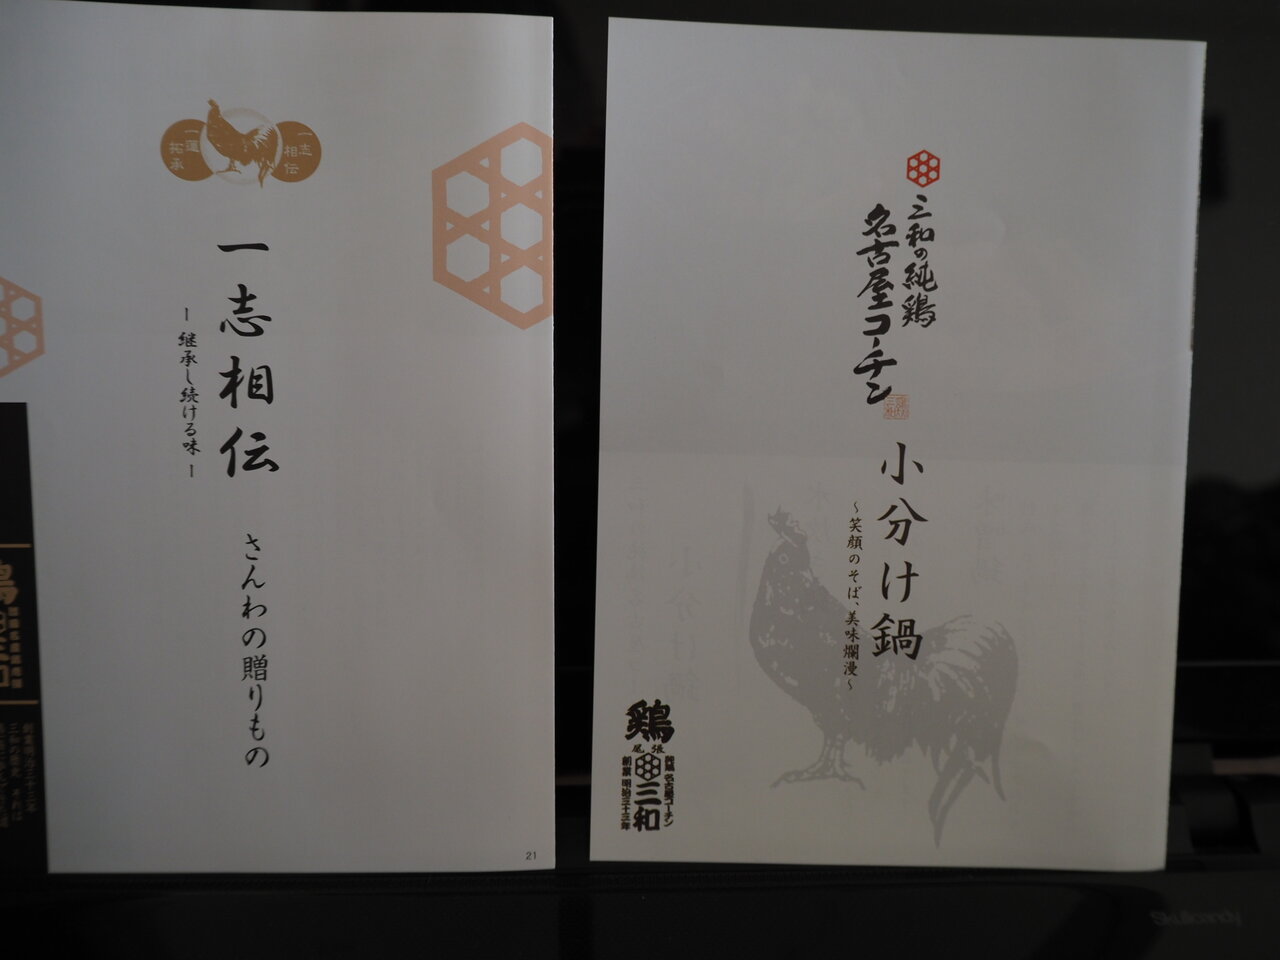 一運
拓承
一志
相伝
一志相伝
ー継承し続ける味ー
さんわの贈りもの
21
三和の純鶏
名古屋コーチン
小分け鍋
～笑顔のそば、美味爛漫～
鶏
尾張
三和
創業明治三十三年
創業明治三十三年
Skullcandy